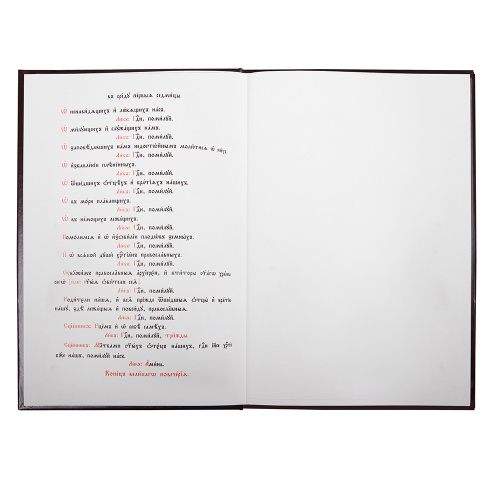 въ срєдѹ̀ пе́рвыѧ седми́цы
Ѡ҆ ненави́дѧщихъ и҆ лю́бѧщихъ на́съ.
Ли́къ: Гдⷭ҇и, поми́лꙋй.
Ѡ҆ ми́лꙋющихъ и҆ слꙋжа́щихъ на́мъ.
Ли́къ: Гдⷭ҇и, поми́лꙋй.
Ѡ҆ заповѣ́давшихъ на́мъ недостѡ́йнымъ моли́тисѧ ѡ҆ ни́хъ.
Ли́къ: Гдⷭ҇и, поми́лꙋй.
Ѡ҆ и҆збавле́нїи плѣне́нныхъ.
Ли́къ: Гдⷭ҇и, поми́лꙋй.
Ѡ҆ ѿше́дшихъ ѻ҆тцѣ́хъ и҆ бра́тїѧхъ на́шихъ.
Ли́къ: Гдⷭ҇и, поми́лꙋй.
Ѡ҆ въ мо́ри пла́вающихъ.
Ли́къ: Гдⷭ҇и, поми́лꙋй.
Ѡ҆ въ не́мощехъ лежа́щихъ.
Ли́къ: Гдⷭ҇и, поми́лꙋй.
Помо́лимсѧ и҆ ѡ҆ и҆з̾ѻби́лїи плодѡ́въ земны́хъ.
Ли́къ: Гдⷭ҇и, поми́лꙋй.
И҆ ѡ҆ всѧ́кой дꙋшѝ хрⷭ҇тїа́нъ правосла́вныхъ.
Ли́къ: Гдⷭ҇и, поми́лꙋй.
правосла́вныѧ а҆рхїерє́и, и҆ кти́торы ст҃а́гѡ хра́ма
ст҃ы́ѧ ѻ҆би́тели сеѧ̀
Ли́къ: Гдⷭ҇и, поми́лꙋй.
Роди́тели на́шѧ, и҆ всѧ̑ пре́жде ѿше́дшыѧ ѻ҆тцы̀ и҆ бра́тїю
на́шꙋ, здѣ̀ лежа́щыѧ и҆ повсю́дꙋ, правосла́вныѧ.
Ли́къ: Гдⷭ҇и, поми́лꙋй.
Сщ҃е́нникъ: Рце́мъ и҆ ѡ҆ себѣ̀ самѣ́хъ.
Ли́къ: Гдⷭ҇и, поми́лꙋй, три́жды
Сщ҃е́нникъ: Мл҃твами ст҃ы́хъ ѻ҆тє́цъ на́шихъ, гдⷭ҇и і҆и҃се хрⷭ҇тѐ
бж҃е на́шъ, поми́лꙋй на́съ.
Ли́къ: А҆ми́нь.
Коне́цъ вели́кагѡ повече́рїѧ.